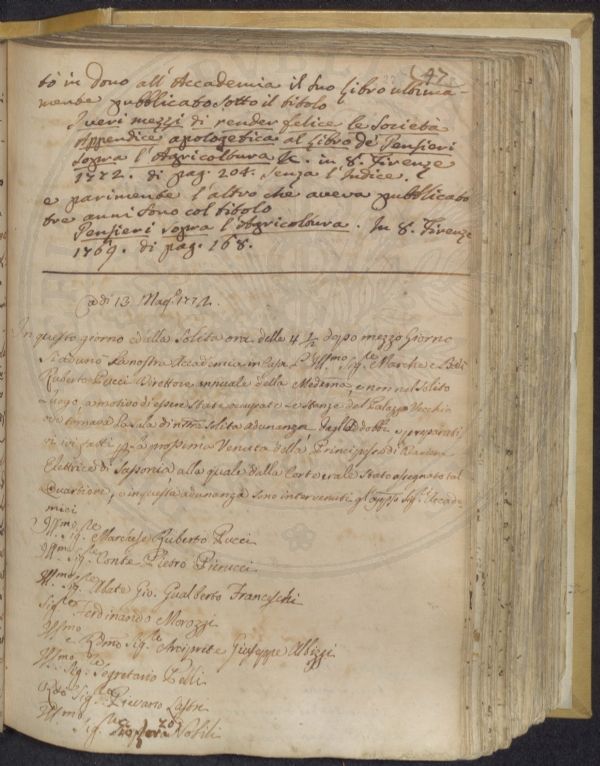 47
tò in dono all'Accademia il suo libro ultima-
mente pubblicato sotto il titolo
I veri mezzi di render felice le Società
Appendice apologetica al Libro de' Pensieri
sopra l'Agricoltura &c. in 8. Firenze
1772. di pag. 204. senza l'Indice.
e parimente l'altro che aveva pubblicato
tre anni sono col titolo
Pensieri sopra l'Agricoltura. In 8. Firenze
1769. di pag. 168.
Adi 13 Mag.o 1772.
In questo giorno ed alla solita ora delle 4 1/2 dopo mezzo Giorno
si adunò la nostra Accademia in Casa l'Ill.mo Sig.re Marchese Bali
Ruberto Pucci Direttore annuale della Medema, e non nel solito
Luogo, a motivo di essere state occupate le stanze del Palazzo Vecchio
ove tornava la sala di nostra solita adunanza, dagli addobbi, e preparati
vi ivi fatti per la prossima Venuta della Principessa di Baviera
Elettrice di Sassonia alla quale dalla Corte era stato assegnato tal
Quartiere, a in questa adunanza sono intervenuti gl'appo Sig.i Accade
mici
Ill.mo Sig.re Marchese Ruberto Pucci
Ill.mo Sig.re Conte Pietro Pierucci
Ill.mo Sig.re Abate Gio. Gualberto Franceschi
Sig.re Ferdinando Morozzi
Ill.mo e R.mo Sig.re Arciprete Giuseppe Albizzi
Ill.mo Sig.re Segretario Pelli
R.do Sig.re Pievano Lastri
Ill.mo Sig.re Nobili